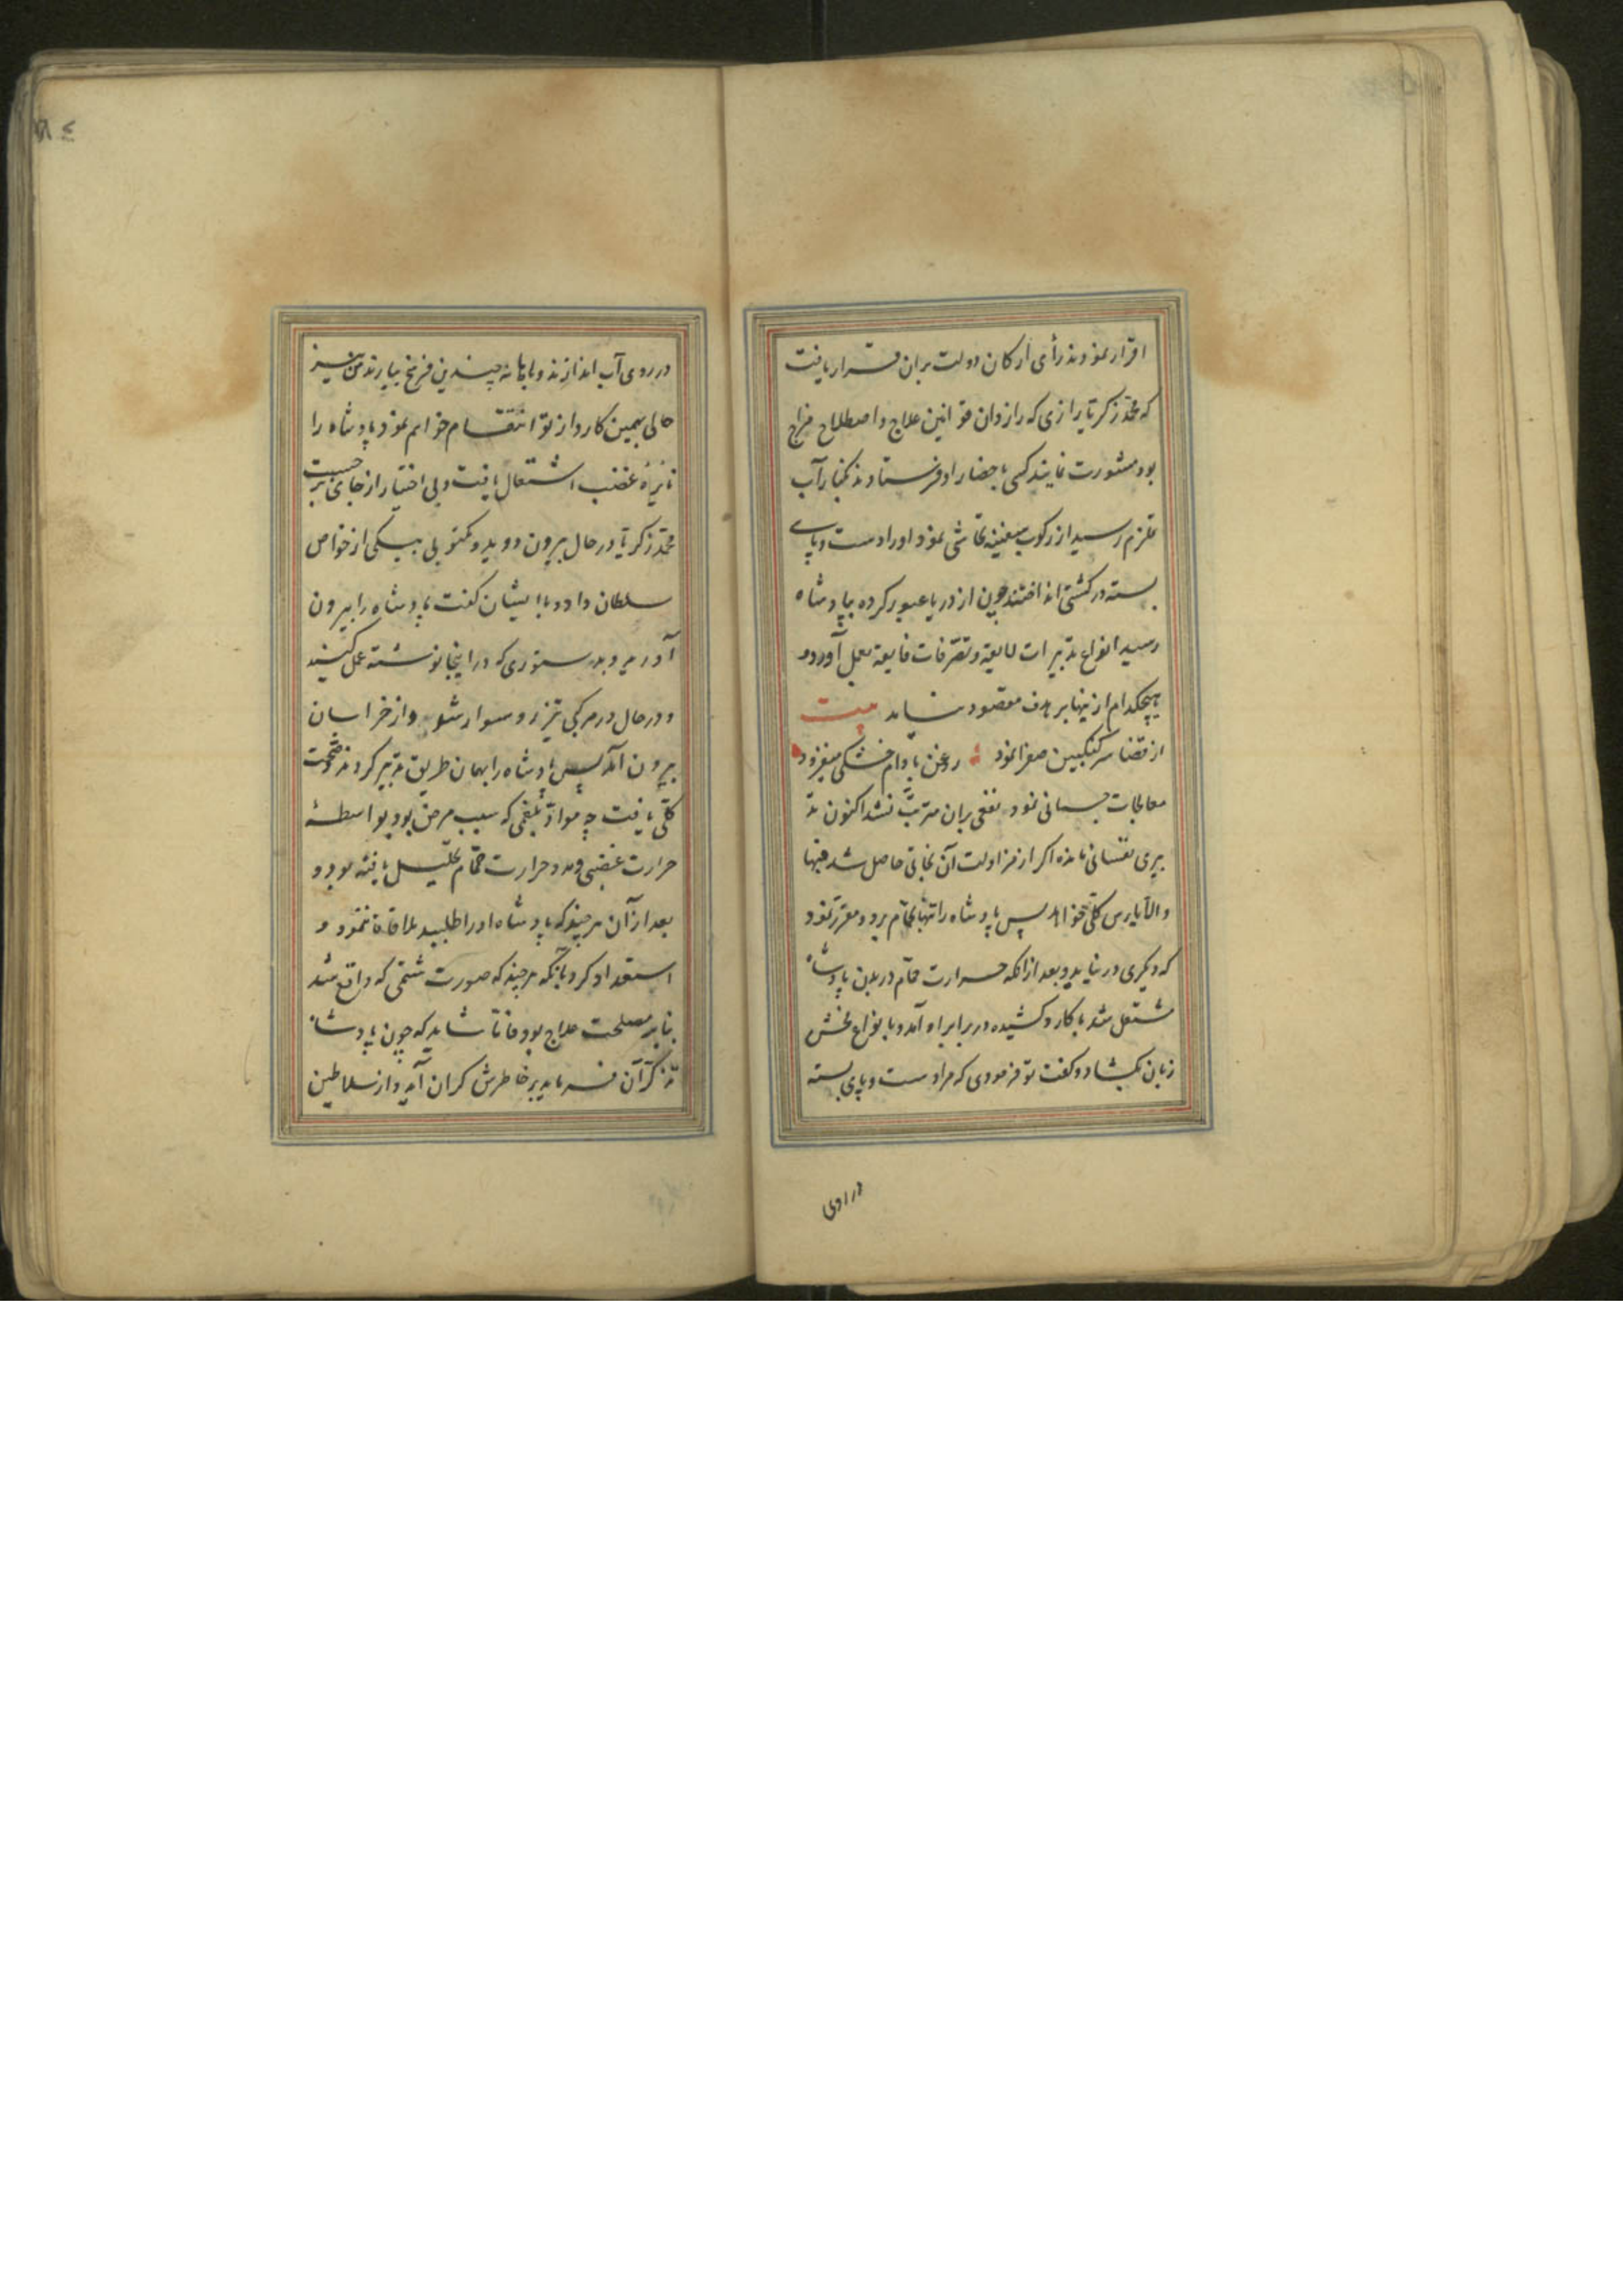 اقرار نمودند رأی ارکان دولت بران قرار یافت
که محمّد زکریّا رازی که رازدان قوانین علاج و اصطلاح مزاج
بود مشورت نمایند کسی باحضار او فرستادند بکنار آب
قلزم رسید از رکوب سفینه تحاشی نمود او را دست و پای
بسته در کشتی انداختند چون از دریا عبور کرده بپادشاه
رسید انواع تدبیرات لایقه و تصرّفات فایقه بعمل آورد و
هیچکدام ازینها بر هدف مقصود نیامد بیت
از قضا سرکنکبین صفرا نمود روغن بادام خشکی میفزود
معالجات جسمانی نمود نفعی بران مترتّب نشد اکنون تد
بیری نفسانی مانده اکر از مزاولت آن نجاتی حاصل شد فبها
و الّا یأس کلّی خواهد پس پادشاه را تنها بحمّام برد و مقرّر نمود
که دیکری در نیاید و بعد ازانکه حرارت حمّام در بدن پادشاه
مشتعل شد با کارد کشیده در برابر او آمد و بانواع فحش
زبان بکشاد و کفت تو فرمودی که مرا دست و پای بسته
در روی
در روی آب اندازند و چندین فرسخ بیارند من نیز
حالی بهمین کارد از تو انتقام خواهم نمود پادشاه را
نایرهٔ غضب اشتعال یافت و بی اختیار از جای بر جست
محمّد زکریّا در حال بیرون دوید و مکتوبی بیکی از خواص
سلطان داد و با ایشان کفت پادشاه را بیرون
آورید و بدستوری که در اینجا نوشته عمل کنید
و در حال در مرکبی تیزرو سوار شد و از خراسان
بیرون آمد پس پادشاه را بهمان طریق تدبیر کردند و صحّت
کلّی یافت چه موادّ بلغمی که سبب مرض بود بواسطهٔ
حرارت غضبی و مدد حرارت حمّام تحلیل یافته بود و
بعد ازآن هر چند که پادشاه او را طلبید ملاقات ننمود و
استعداد کرد بآنکه هر چند که صورت شتمی که واقع شد
بنابر مصلحت علاج بود فامّا شاید که چون پادشاه
تذکّر آن فرماید بر خاطرش کران آید و از سلاطین